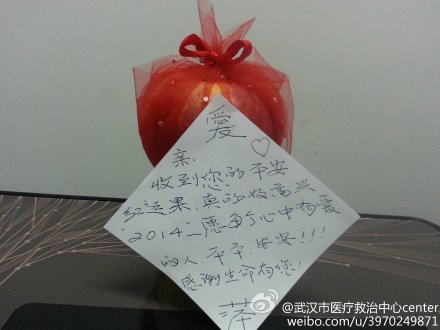 愛
亲:
收到您的平安
红运果.真的好高兴
2014_愿每个心中有爱
的人平平.安安!!!
感谢生命有您!
萍
@武汉市医疗救治中心center
weibo.com/u/3970249871